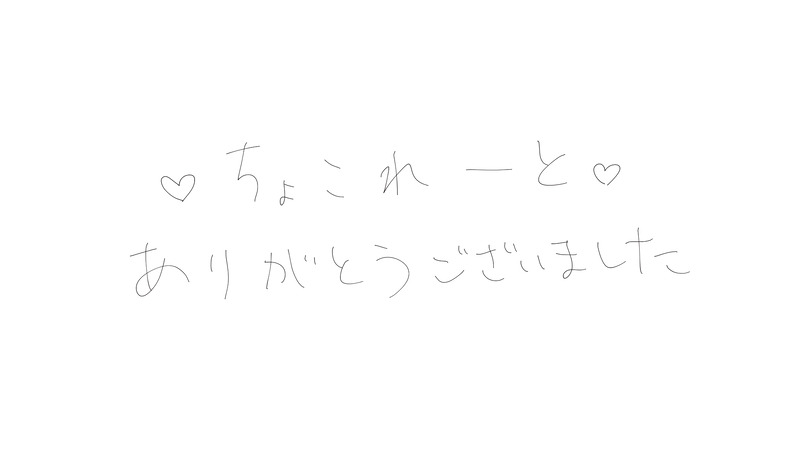 ♡ちょこれーと♡
ありがとうございました